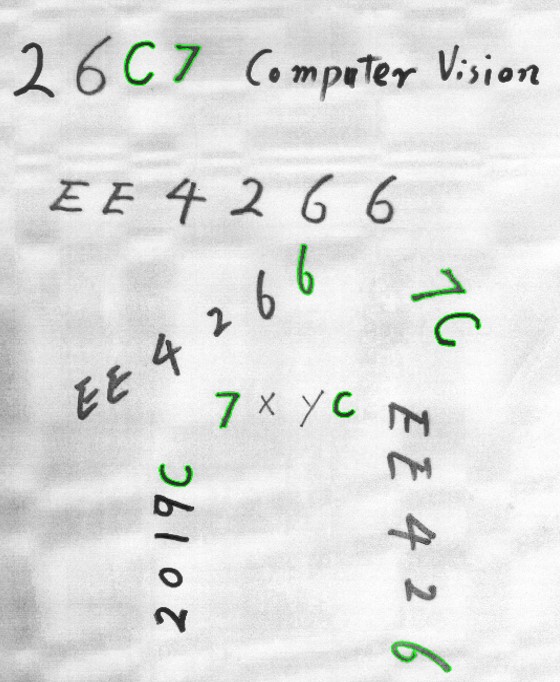 26C7 Computer Vision
EE4266
EE4266
7C
7xyC
2019C
EE426